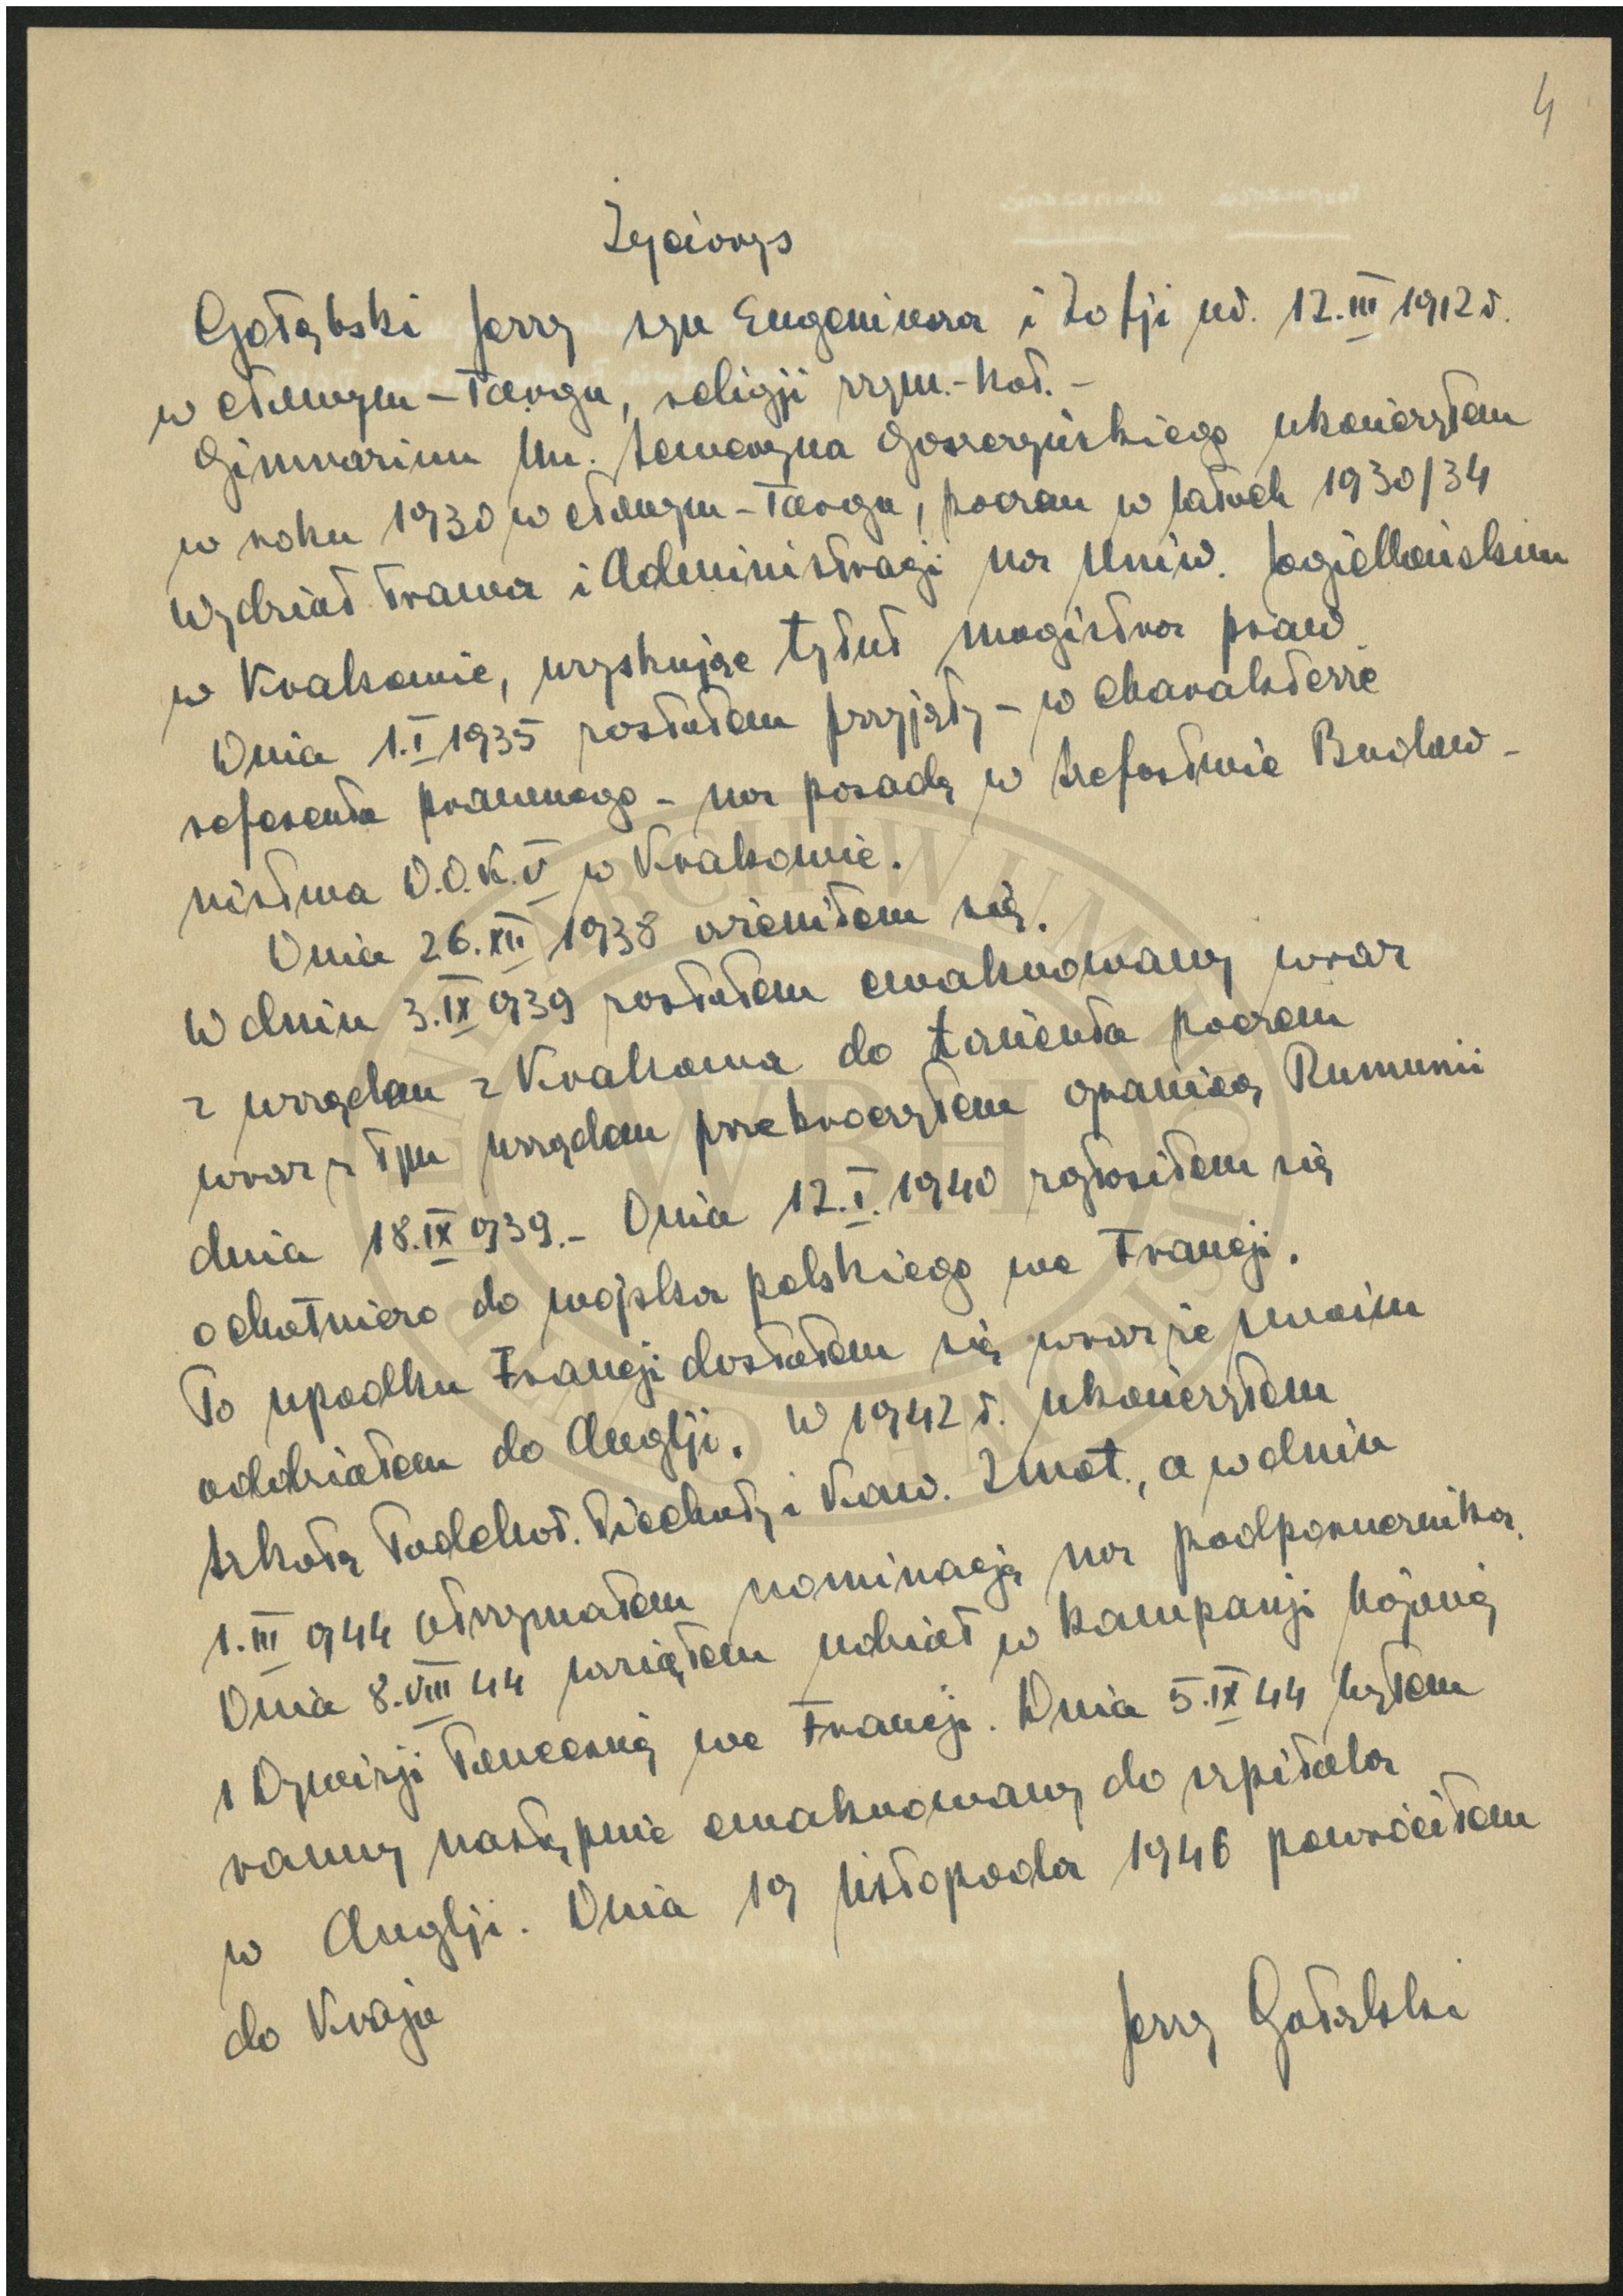 4
Życiorys
Gołąbski Jerzy syn Eugeniusza i Zofji ur. 12.III 1912 r.
w Nowym-Targu, religji rzym.-kat. -
Gimnazium im. Seweryna Goszczyńskiego ukończyłem
w roku 1930 w Nowym-Targu, poczem w latach 1930/34
Wydział Prawa i Administracji na Uniw. Jagiellońskim
w Krakowie, uzyskując tytuł magistra praw.
Dnia 1.I 1935 zostałem przyjęty - w charakterze
referenta prawnego - na posadę w Szefostwie Budow-
nictwa D.O.K. V w Krakowie.
Dnia 26.XII 1938 ożeniłem się.
W dniu 3.IX 939 zostałem ewakuowany wraz
z urzędem z Krakowa do Łańcuta poczem
wraz z tym urzędem przekroczyłem granicę Rumunii
dnia 18.IX 939.- Dnia 12.I.1940 zgłosiłem się
ochotniczo do wojska polskiego we Francji.
Po upadku Francji dostałem się wraz ze swoim
oddziałem do Anglji. W 1942 r. ukończyłem
Szkołę Podchor. Piechoty i Kaw. Zmot., a w dniu
1.III 944 otrzymałem nominację na podporucznika.
Dnia 8.VIII 44 wziąłem udział w kampanji
1 Dywizji Pancerną we Francji. Dnia 5.IX 44 byłem
ranny następnie ewakuowany do szpitala
w Anglji. Dnia 19 listopada 1946 powróciłem
do Kraju
Jerzy Gołąbski
ARCHIWUM
WBH